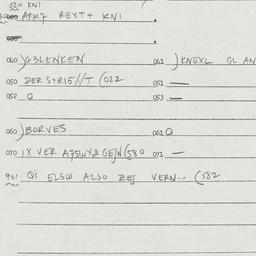 020 KNI
APM7 REXT+ KNI
040 ) G3LENKEN 041 ) KNEXL GL AN
050 DER S+RIS//T (022 051 —
052 O 053 —
060 ) BORVES 061 O
070 IX VER A75WX2 GEJN (580 071 —
901 QI ELSW ALSO ZEJ VERN... (582